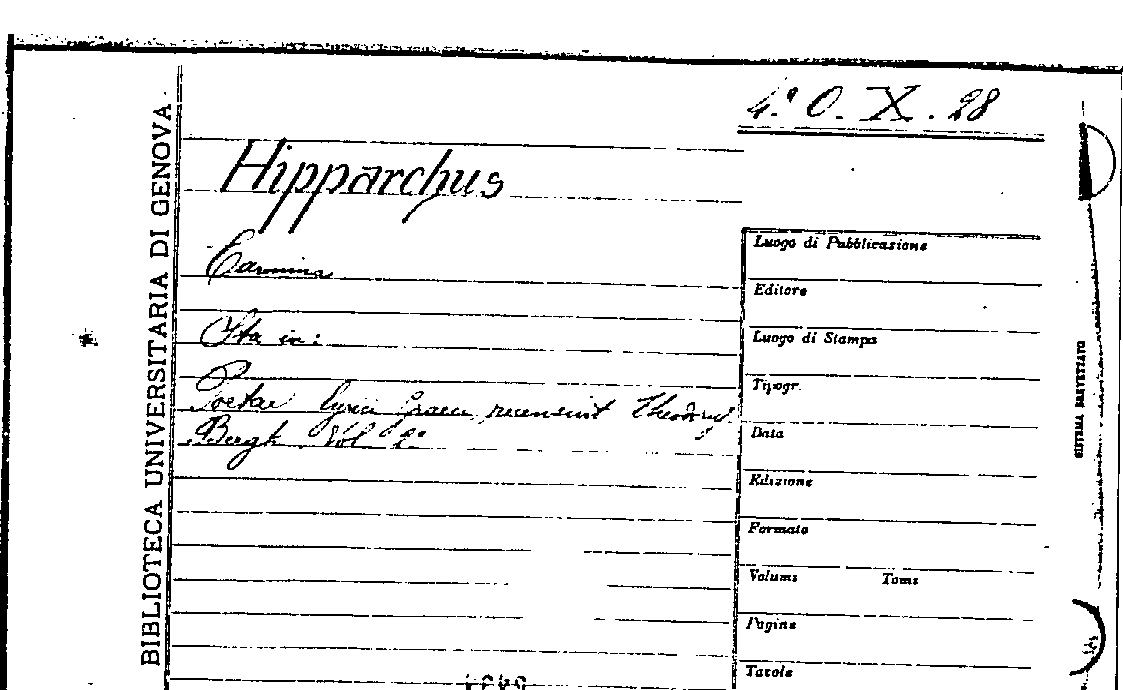 4.° O. X. 28
BIBLIOTECA UNIVERSITARIA DI GENOVA
Hipparchus
Carmina
Sta in:
Poetae lyrici graeci recensuit
Bergk Vol 2°
Luogo di Pubblicazione
Editore
Luogo di Stampa
Tipogr.
Data
Edizione
Formato
Volumi Tomi
Pagine
Tavole
SISTEMA BREVETTATO